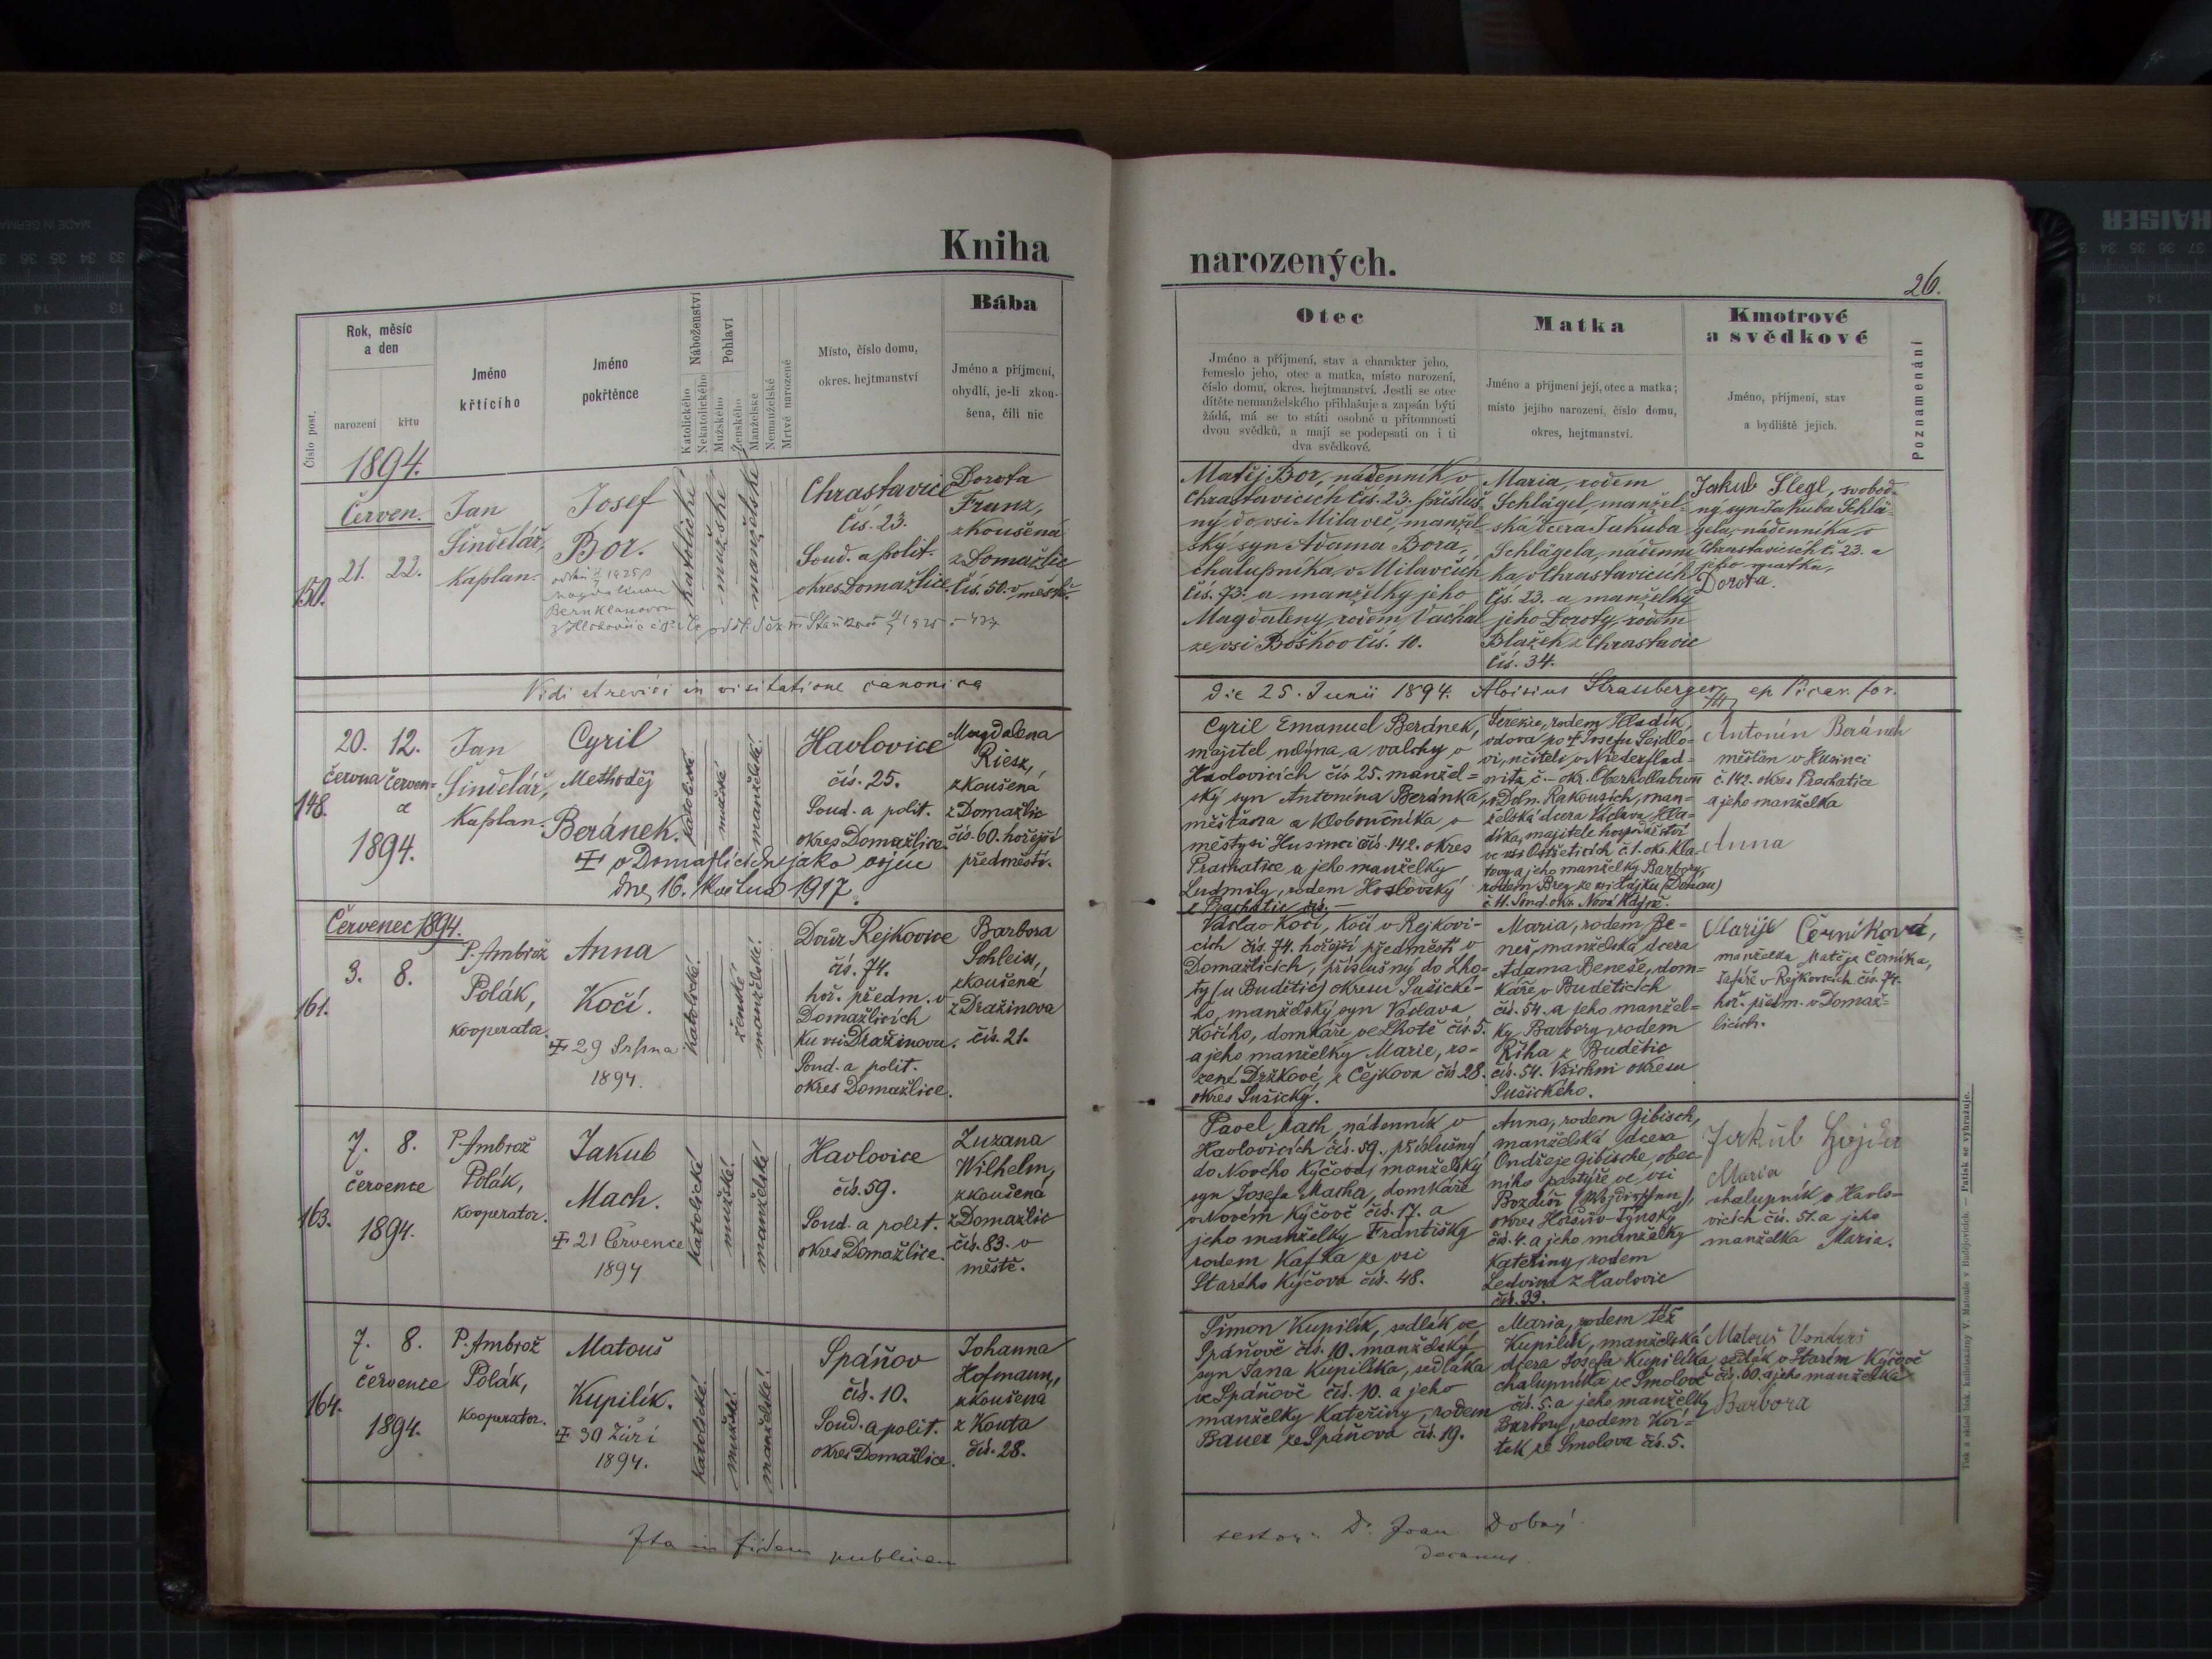 Kniha
narozených.
26.
Číslo post.
Rok, měsíc
a den
narození
křtu
Jméno
křtícího
Jméno
pokřtěnce
Náboženství
Katolického
Nekatolického
Pohlaví
Mužského
Ženského
Manželské
Nemanželské
Mrtvě narozené
Místo, číslo domu,
okres. hejtmanství
Bába
Jméno a příjmení,
obydlí, je-li zkou-
šena, čili nic
Otec
Jméno a příjmení, stav a charakter jeho,
řemeslo jeho, otec a matka, místo narození,
číslo domu, okres. hejtmanství. Jestli se otec
dítěte nemanželského přihlašuje a zapsán býti
žádá, má se to státi osobně u přítomnosti
dvou svědků, a mají se podepsati on i ti
dva svědkové.
Matka
Jméno a příjmení její, otec a matka;
místo jejího narození, číslo domu,
okres, hejtmanství.
Kmotrové
a svědkové
Jméno, příjmení, stav
a bydliště jejich.
Poznamenání
1894.
Červen.
150.
21. 22.
Jan
Šindelář,
Kaplan.
Josef
Bor.
katolické
mužské
manželské
Chrastavice
čís. 23.
Soud. a polit.
okres Domažlice.
Dorota
Franz,
zkoušená
z Domažlic
čís. 50. v městě.
Matěj Bor, nádenník v
Chrastavicích čís. 23. přísluš-
ný do vsi Milavče, manžel-
ský syn Adama Bora,
chalupníka v Milavčích
čís. 73. a manželky jeho
Magdaleny, rodem Váchal
ze vsi Boškov čís. 10.
Maria, rodem
Schlägel, manžel-
ská dcera Jakuba
Schlägela, nádenní-
ka v Chrastavicích
čís. 23. a manželky
jeho Doroty, rodem
Blažek z Chrastavic
čís. 34.
Jakub Šlegl, svobod-
ný syn Jakuba Schlä-
gela, nádenníka v
Chrastavicích č. 23. a
jeho matka,
Dorota.
Vidi et revidi in visitatione canonica
die 25. Junii 1894. Aloisius Strassberger, ep. Vicar. for.
148.
20. 12.
června červen-
a
1894.
Jan
Šindelář,
Kaplan.
Cyril
Methoděj
Beránek.
✝ v Domažlicích jako vojín
dne 16. 1917.
katolické
mužské
manželské.
Havlovice
čís. 25.
Soud. a polit.
okres Domažlice.
Magdalena
Riesz,
zkoušená
z Domažlic
čís. 60. hořejší
předměstí.
Cyril Emanuel Beránek,
majitel mlýna a valchy v
Havlovicích čís 25. manžel=
ský syn Antonína Beránka,
měšťana a kloboučníka v
městysi Husinci čís. 142. okres
Prachatice a jeho manželky
Ludmily, rodem Hoslovský
z Prachatic čís. —
Terezie, rodem Hladík,
vdova po ✝ Josefu Seidlo-
vi, učiteli v Niederflad-
nitz č. – okr. Oberhollabrunn
v Doln. Rakousích, man=
želská dcera Václava Hla-
díka, majitele hospodářství
ve vsi Ostřeticích č. 1. okr. Kla-
tovy a jeho manželky Barbory,
rodem Breg ze vsi Hájku (Donau)
č. 11. Soud. okr. Nová Kdyně.
Antonín Beránek
měšťan v Husinci
č. 142. okres Prachatice
a jeho manželka
Anna
Červenec 1894.
161.
3. 8.
P. Ambrož
Polák,
kooperata.
Anna
Kočí.
✝ 29 Srpna
1894.
katolické.
ženské
manželské.
Dvůr Rejkovice
čís. 74.
hoř. předm. v
Domažlicích
ku vsi Dražinova.
Soud. a polit.
okres Domažlice.
Barbora
Schleiss,
zkoušená
z Dražinova
čís. 21.
Václav Kočí, kočí v Rejkovi-
cích čís. 74. hořejší předměstí v
Domažlicích, příslušný do Lho-
ty (u Budětic) okresu Sušické-
ho, manželský syn Václava
Kočího, domkáře ve Lhotě čís. 5.
a jeho manželky Marie, ro-
zené Držkové z Čejkova čís 28.
okres Sušický.
Maria, rodem Be-
neš, manželská dcera
Adama Beneše, dom-
káře v Buděticích
čís. 54. a jeho manžel-
ky Barbory, rodem
Říha z Budětic
čís. 54. Všichni okresu
Sušického.
Marije Černíková,
manželka Matěje Černíka,
šafáře v Rejkovicích čís. 74.
hoř. předm. v Domaž-
licích.
163.
7. 8.
července
1894.
P. Ambrož
Polák,
kooperator.
Jakub
Mach.
✝ 21 Července
1894
katolické
mužské.
manželské
Havlovice
čís. 59.
Soud. a polit.
okres Domažlice.
Zuzana
Wilhelm,
zkoušená
z Domažlic
čís. 83. v
městě.
Pavel Mach, nádenník v
Havlovicích čís. 59., příslušný
do Nového Kýčova, manželský
syn Josefa Macha, domkáře
v Novém Kýčově čís. 17. a
jeho manželky Františky
rodem Kafka ze vsi
Starého Kýčova čís. 48.
Anna, rodem Gibisch,
manželská dcera
Ondřeje Gibische, obec-
ního pastýře ve vsi
okres Horšův-Týnský
čís. 4. a jeho manželky
Kateřiny, rodem
Ledvina z Havlovic
čís. 33.
Jakub
Maria
chalupník v Havlo-
vicích čís. 51. a jeho
manželka Maria.
164.
7. 8.
července
1894.
P. Ambrož
Polák,
kooperator.
Matouš
Kupilík.
✝ 30 Září
1894.
katolické.
mužské.
manželské.
Spáňov
čís. 10.
Soud. a polit.
okres Domažlice.
Johanna
Hofmann,
zkoušená
z Kouta
čís. 28.
Šimon Kupilík, sedlák ve
Spáňově čís. 10. manželský
syn Jana Kupilíka, sedláka
ve Spáňově čís. 10. a jeho
manželky Kateřiny, rodem
Bauer ze Spáňova čís. 19.
Maria, rodem též
Kupilík, manželská
dcera Josefa Kupilíka,
chalupníka ve Smolově
čís. 5. a jeho manželky
Barbory, rodem Koř-
tek ze Smolova čís. 5.
Matouš
sedlák v Starém Kýčově
čís. 60. a jeho manželka
Barbora
Ita in fidem publicam
testor: Dr. Joan. Dobrý
decanus.
Tisk a sklad blank. kancelářských V. Matouše v Budějovicích. — Patisk se vyhražuje.
MADE IN GERMANY
KAISER